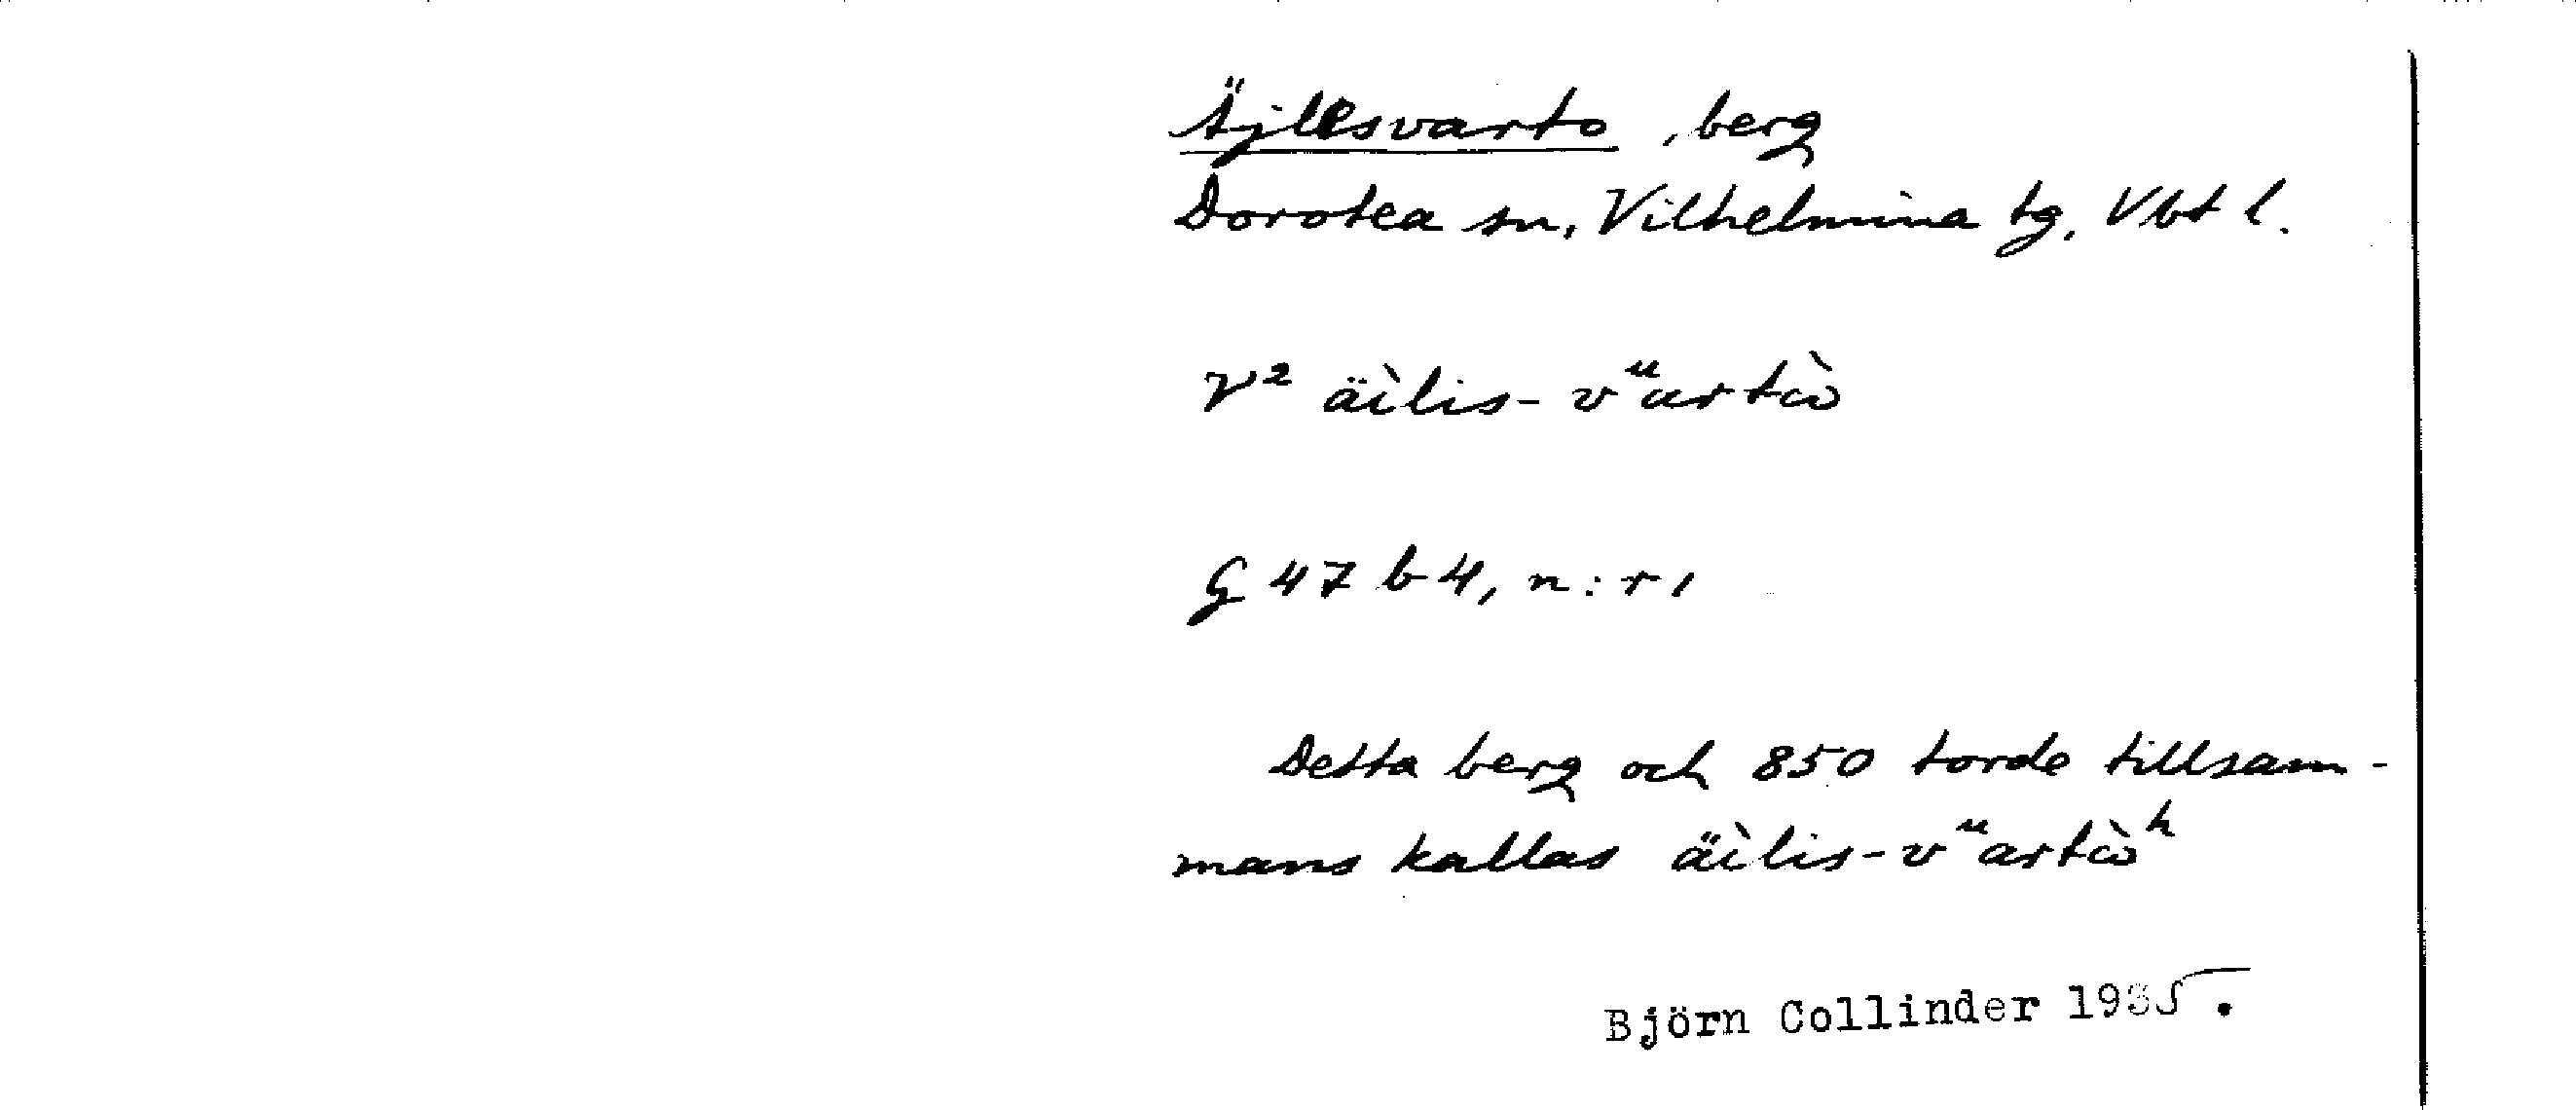 Äjlesvarto, berg
Dorotea sn, Vilhelmina tg, Vbt l.
V² äìlis-vᵘartὼ
G 47 b 4, n:r 1
Detta berg och 850 torde tillsam-
mans kallas äìlis-vᵘartὼʰ
Björn Collinder 1935.